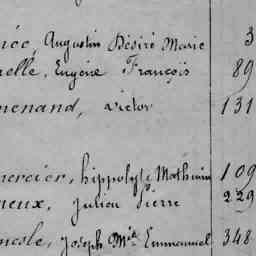 née, Augustin Désiré Marie 3
relle, Eugène François 89
menand, victor 131
mercier, hippolyte Mathurin 109
neux, Julien Pierre 229
nesle, Joseph Mie Emmanuel 348